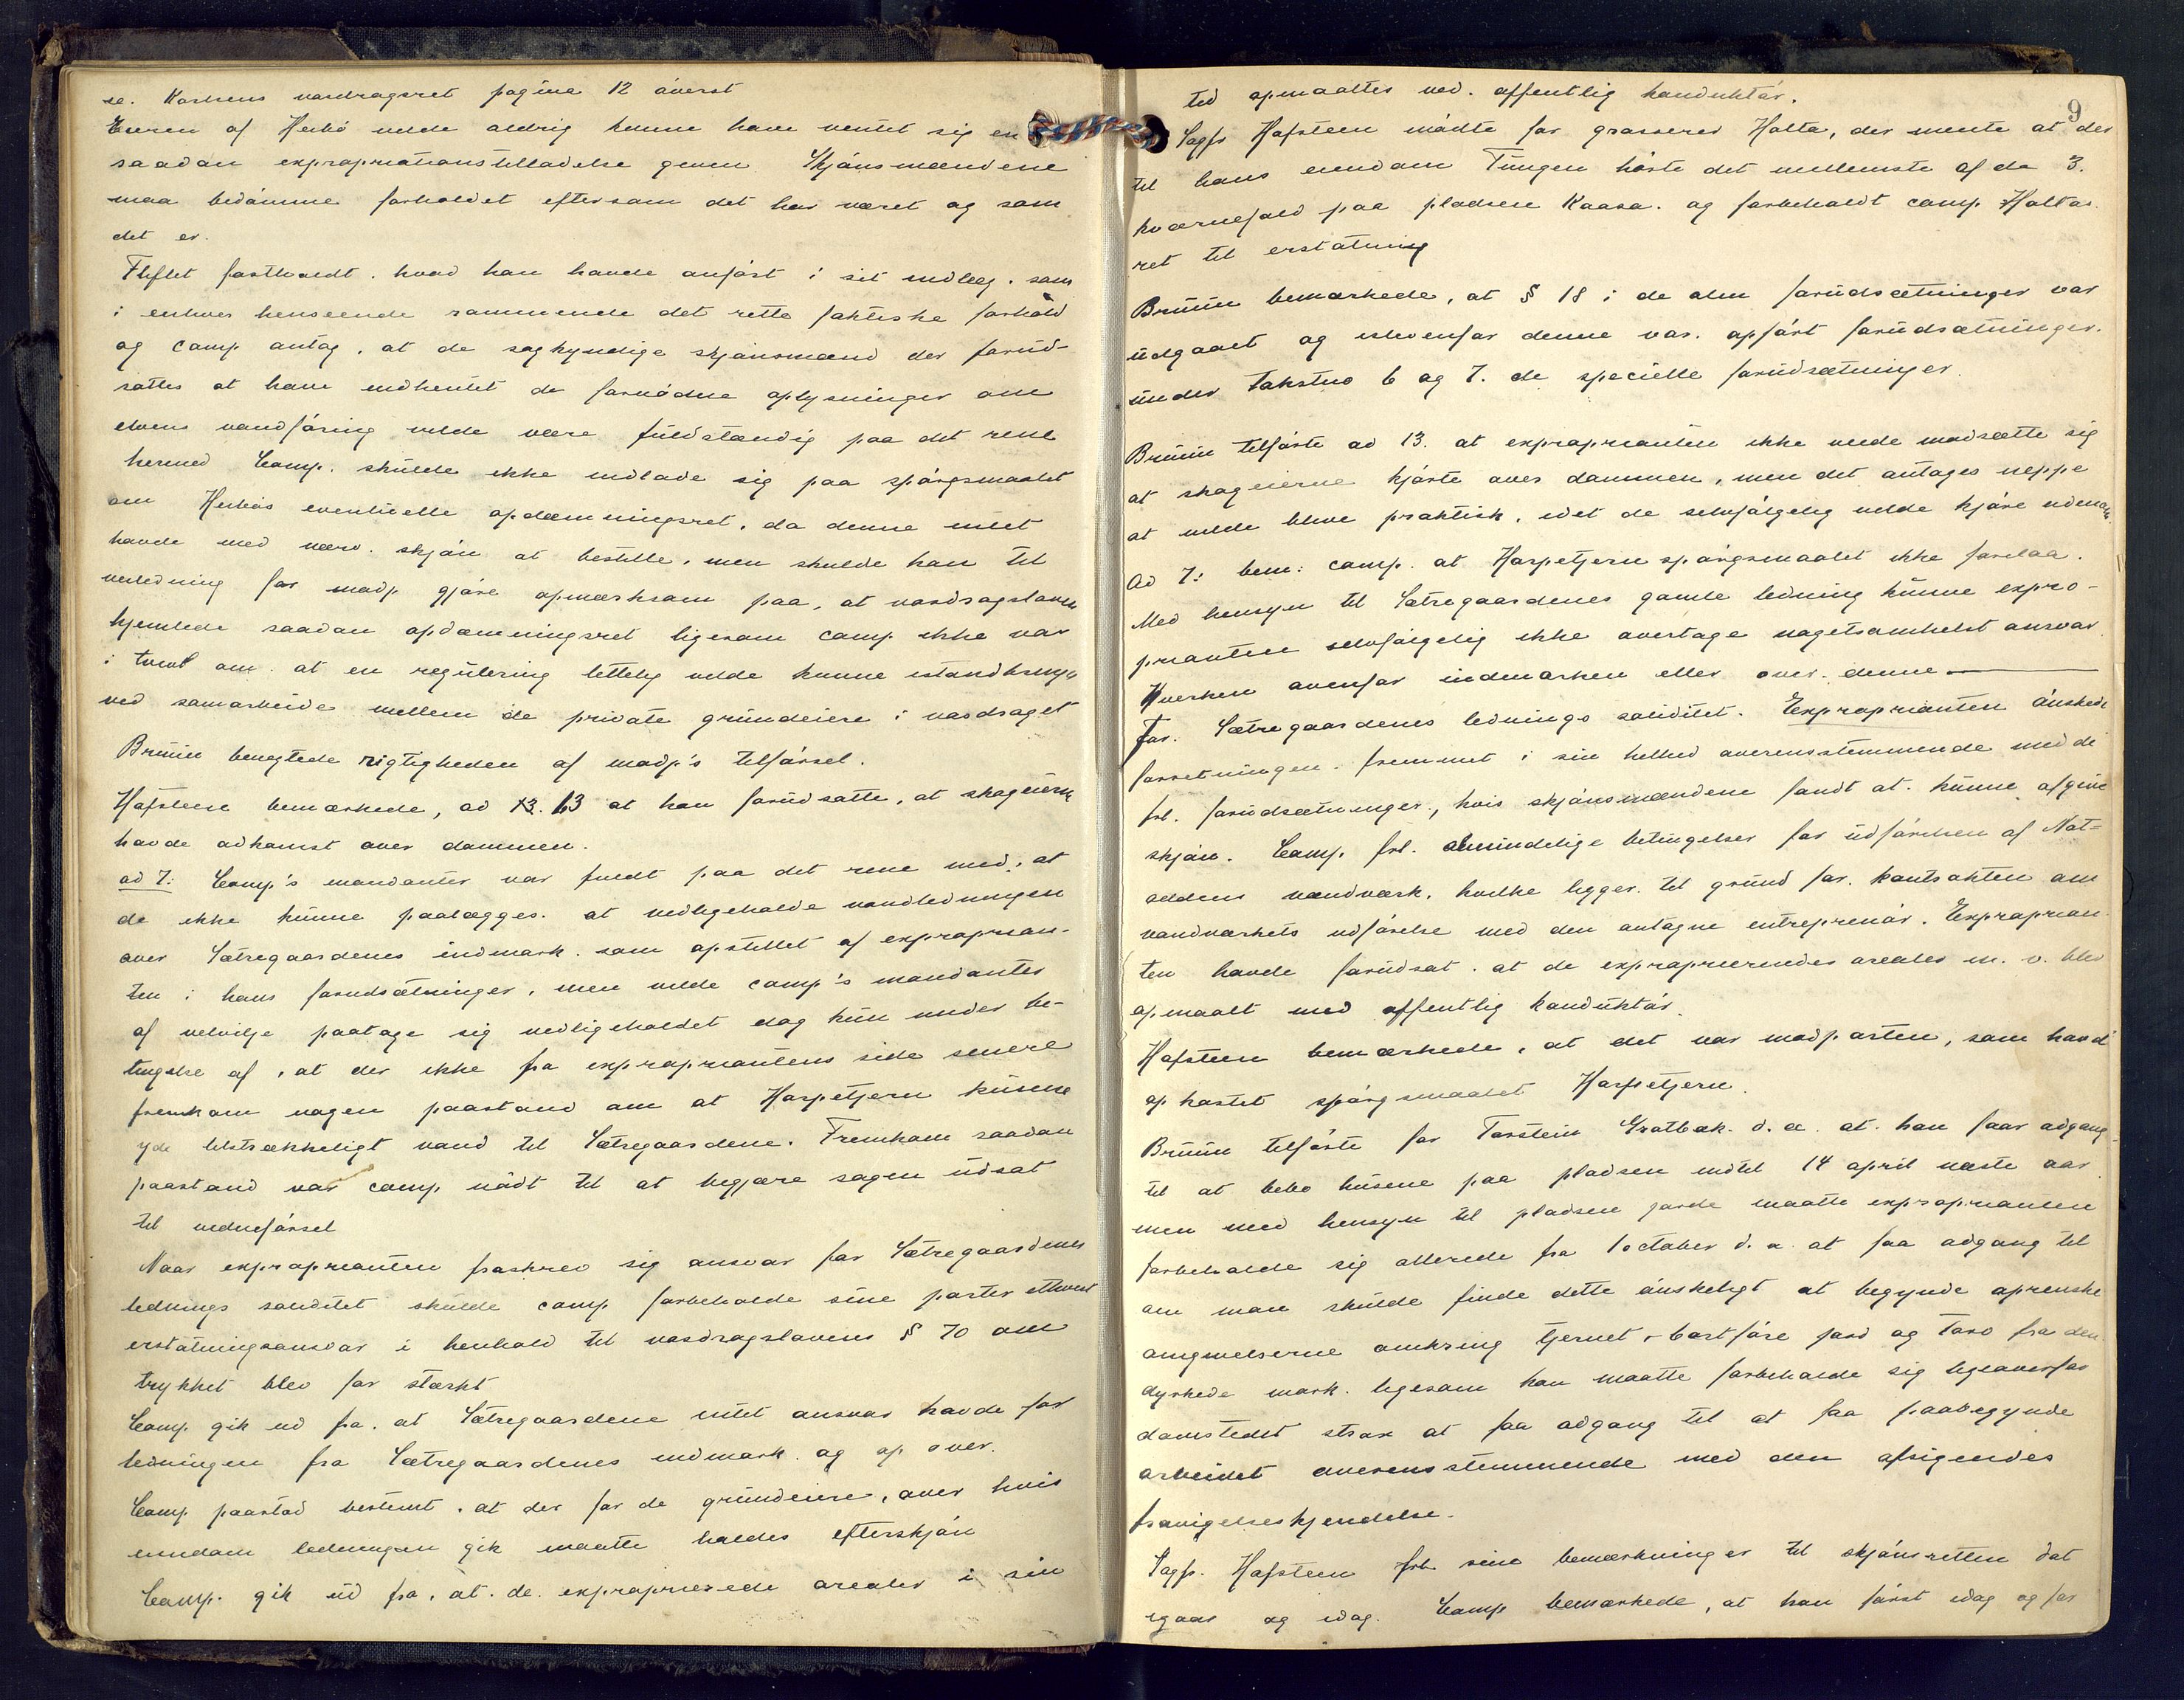 se. Karlsens vasdragsret pagina 12 øverst
Eieren af Herbø vilde aldrig kunne have ventet sig en
saadan expropriationstilladelse given Skjønsmændene
maa bedømme forholdet eftersom det har været og som
det er.
Fliflet fastholdt. hvad han havde anført i sit indlæg. som
i enhver henseende rammende det rette faktiske forhold
og Comp antog, at de sagkyndige skjønsmænd der forud-
sattes at have indhentet de fornødne oplysninger om
elvens vandføring vilde være fuldstændig paa det rene
hermed Comp. skulde ikke indlade sig paa spørgsmaalet
om Herbøs eventuelle opdæmningsret, da denne intet
havde med nærv. skjøn at bestille, men skulde han til
veiledning for modp gjøre opmærksom paa, at vasdragsloven
hjemlede saadan opdæmningsret ligesom comp ikke var
i tvivl om. at en regulering lettelig vilde kunne istandbringes
ved samarbeide mellem de private grundeiere i vasdraget
Bruun benegtede rigtigheden af modp's tilførsel.
Hafsteen bemærkede, ad 13. 13 at han forudsatte, at skogeierne
havde adkomst over dammen.
ad 7: Comp's mandanter var fuldt paa det rene med, at
de ikke kunne paalægges. at vedligeholde vandledningen
over Sætregaardenes indmark. som opstillet af exproprian-
ten i hans forudsætninger, men vilde comp's mandanter
af velvilje paatage sig vedligeholdet dog kun under be-
tingelse af, at der ikke fra expropriantens side senere
fremkom nogen paastand om at Harpetjern kunne
yde tilstrækkeligt vand til Sætregaardene. Fremkom saadan
paastand var comp nødt til at begjære sagen udsat
til vidneførsel
Naar exproprianten fraskrev sig ansvar for Sætregaardenes
lednings soliditet skulde comp forbeholde sine parter ethvert
erstatningsansvar i henhold til vasdragslovens § 70 om
trykket blev for stærkt
Comp gik ud fra. at Sætregaardene intet ansvar havde for
ledningen fra Sætregaardenes indmark. og op over.
Comp paastod bestemt. at der for de grundeiere, over hvis
eiendom ledningen gik maatte holdes efterskjøn
Comp. gik ud fra, at. de. exproprierede arealer i sin
9
tid opmaaltes ved. offentlig konduktør.
Sagfr Hafsteen mødte for grosserer Holta, der mente at der
til hans eiendom Tungen hørte det mellemste af de 3.
kværnefald paa pladsen Kaasa. og forbeholdt comp Holtas
ret til erstatning
Bruun bemærkede, at § 18 i de alm forudsætninger var
udgaaet og istedenfor denne var. opført forudsætninger.
under Takstno 6 og 7. de specielle forudsætninger.
Bruun tilførte ad 13. at exproprianten ikke vilde modsætte sig
at skogeierne kjørte over dammen, men det antages neppe
at vilde blive praktisk, idet de selvfølgelig vilde kjøre udenom.
Ad 7: bem: comp. at Harpetjern spørgsmaalet ikke forelaa.
Med hensyn til Sætregaardenes gamle ledning kunne expro-
prianten selvfølgelig ikke overtage nogetsomhelst ansvar
Hverken ovenfor indmarken eller over. denne
for. Sætregaardenes lednings soliditet. Exproprianten ønskede
forretningen. fremmet i sin helhed overensstemmende med de
frl. forudsætninger, hvis skjønsmændene fandt at. kunne afgive
skjøn. Comp. frl. almindelige betingelser for udførelsen af Not-
oddens vandværk. hvilke ligger. til grund for. kontrakten om
vandværkets udførelse med den antagne entreprenør. Exproprian-
ten havde forudsat. at de exproprierendes arealer m. v. blev
opmaalt med offentlig konduktør.
Hafsteen bemærkede, at det var modparten, som havde
op kastet spørgsmaalet Harpetjern.
Bruun tilførte for Torstein Grotbæk. d. a. at. han faar adgang
til at bebo husene paa pladsen indtil 14 april næste aar
men med hensyn til pladsen jorde maatte exproprianten
forbeholde sig allerede fra 1 october d. a. at faa adgang til
om man skulde finde dette ønskeligt at begynde oprenske
omgivelserne omkring tjernet & bortføre jord og Torv fra den
dyrkede mark. ligesom han maatte forbeholde sig ligeoverfor
damstedet strax at faa adgang til at faa paabegynde
arbeidet overensstemmende med den afsigendes
fravigelseskjendelse.
Sagfr. Hafsteen frl sine bemærkninger til skjønsretten dat
igaar og idag. Comp bemærkede, at han først idag og for